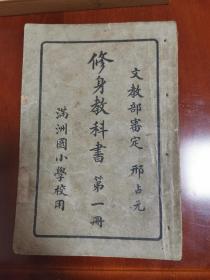 文教部審定 邢占元
修身教科書 第一冊
滿洲國小學校用